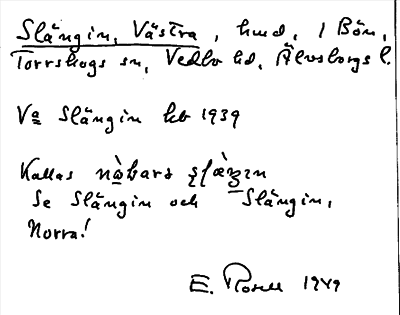 Slängin, Västra, hmd, i Bön,
Torrskogs sn, Vedbo hd, Älvsborgs l.
Va Slängin kb 1939
Kallas
Se Slängin och Slängin,
Norra!
E. Rosell 1949